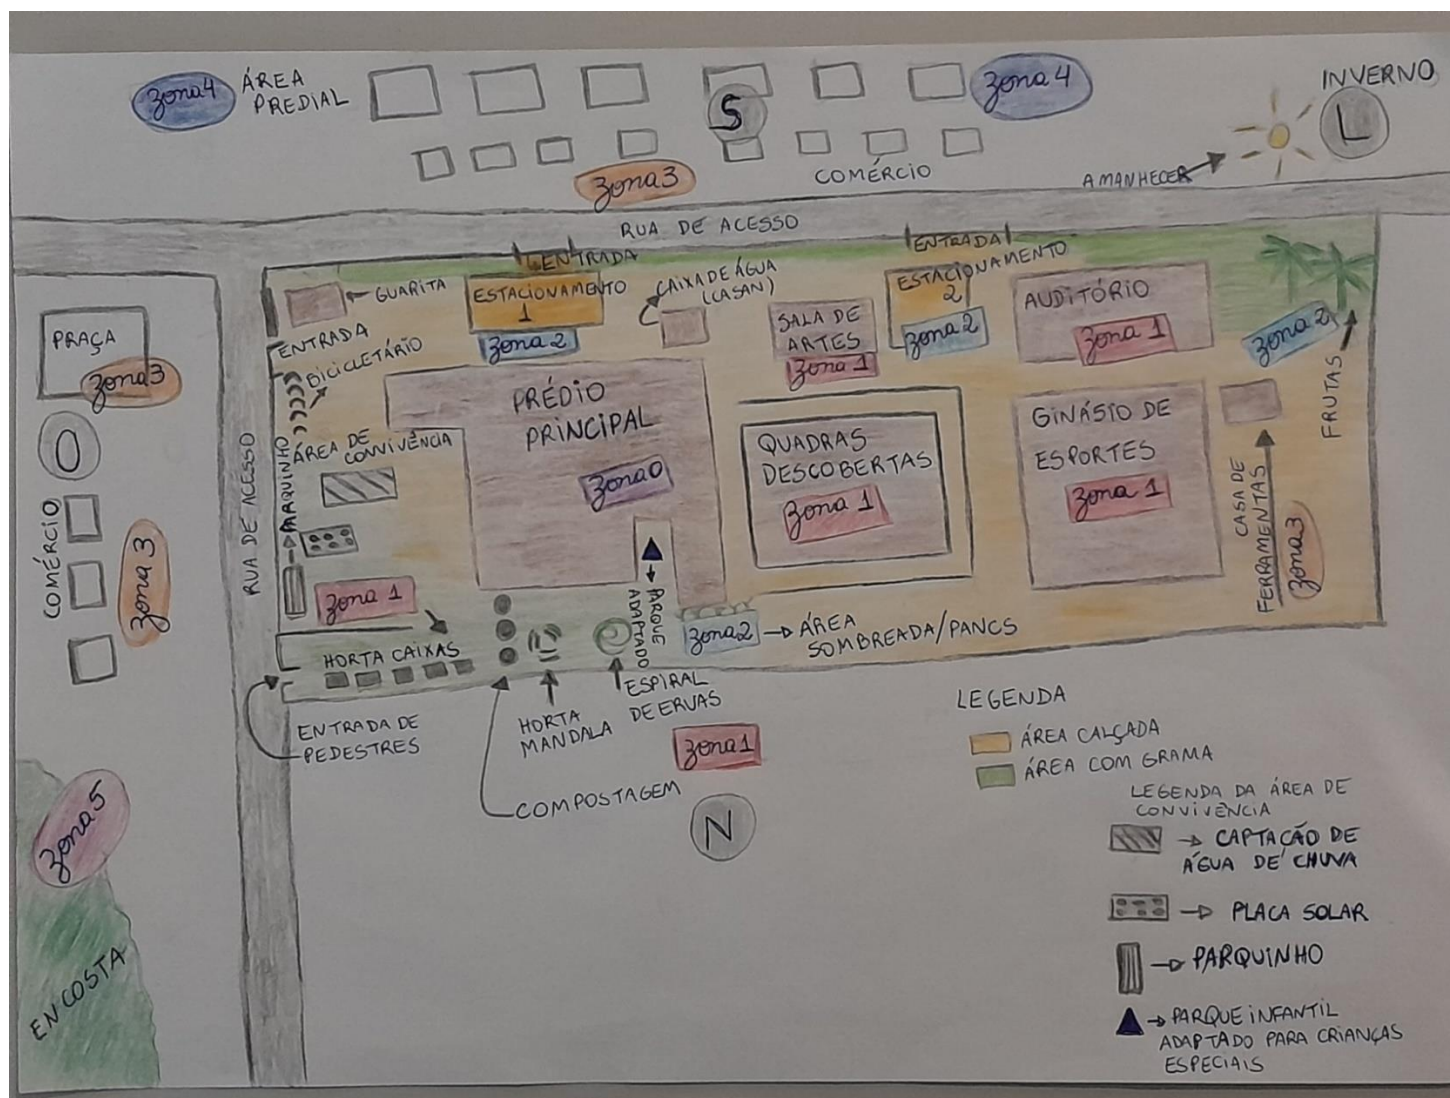 Zona 4
ÁREA
PREDIAL
S
Zona 4
INVERNO
L
Zona 3
COMÉRCIO
AMANHECER
RUA DE ACESSO
ENTRADA
ENTRADA
GUARITA
ESTACIONAMENTO
1
Zona 2
CAIXA DE ÁGUA
(CASAN)
SALA DE
ARTES
Zona 1
ESTACIONAMENTO
2
Zona 2
AUDITÓRIO
Zona 1
Zona 2
FRUTAS
PRAÇA
Zona 3
O
ENTRADA
BICICLETÁRIO
ÁREA DE
CONVIVÊNCIA
PARQUINHO
RUA DE ACESSO
PRÉDIO
PRINCIPAL
Zona 0
QUADRAS
DESCOBERTAS
Zona 1
GINÁSIO DE
ESPORTES
Zona 1
CASA DE
FERRAMENTAS
Zona 3
COMÉRCIO
Zona 3
Zona 1
HORTA CAIXAS
PARQUE
ADAPTADO
Zona 2
ÁREA
SOMBREADA/PANCS
ENTRADA DE
PEDESTRES
HORTA
MANDALA
ESPIRAL
DE ERVAS
Zona 1
COMPOSTAGEM
N
Zona 5
ENCOSTA
LEGENDA
ÁREA CALÇADA
ÁREA COM GRAMA
LEGENDA DA ÁREA DE
CONVIVÊNCIA
CAPTAÇÃO DE
ÁGUA DE CHUVA
PLACA SOLAR
PARQUINHO
PARQUE INFANTIL
ADAPTADO PARA CRIANÇAS
ESPECIAIS